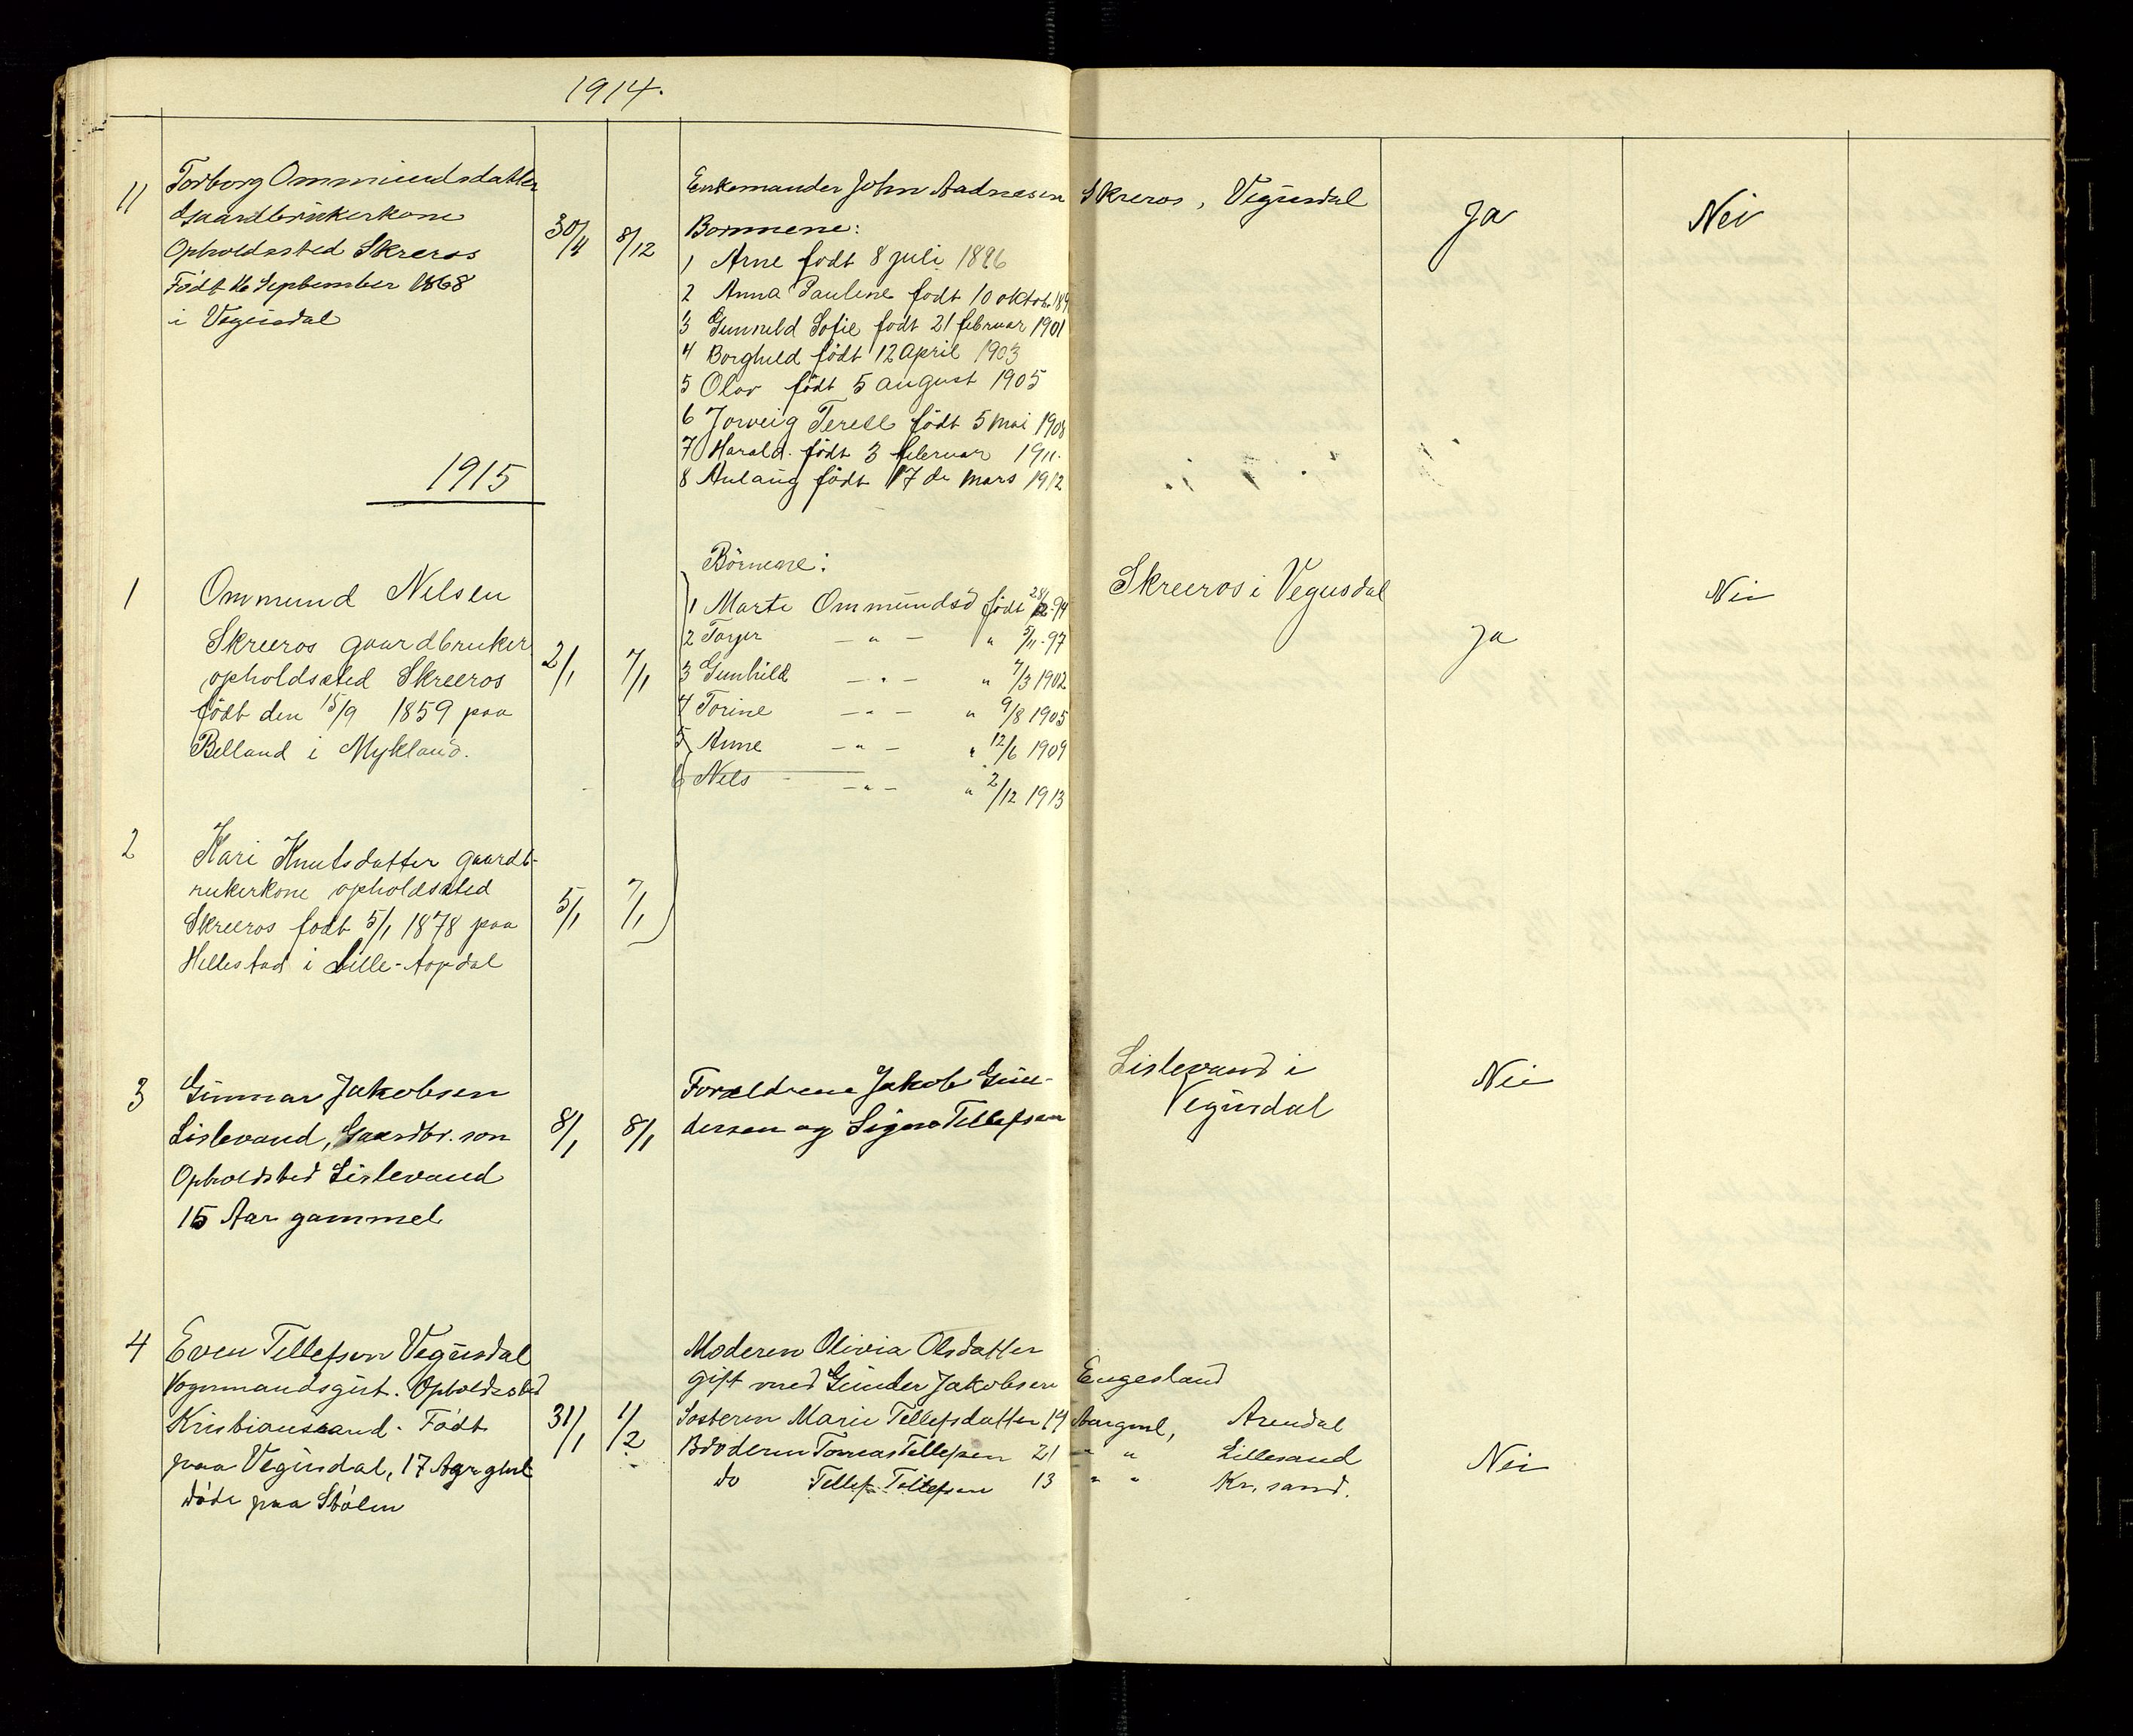 1914.
11
Torborg Ommundsdatter
Gaardbrukerkone
Opholdssted Skreros
Født 16 September 1868
i Vegusdal
30/4
8/12
Enkemanden John Aadnesen Skreros, Vegusdal
Ja
Nei
Børnene:
1 Arne født 8 juli 1896
2 Anna Pauline født 10 oktob. 189
3 Gunnild Sofie født 21 februar 1901
4 Borghild født 12 April 1903
5 Olav født 5 august 1905
6 Jorveig Terese født 5 mai 1908
7 Harald født 3 februar 1911.
8 Aulaug født 17 de mars 1912
1915
1
Ommund Nilsen
Skreeros gaardbruker
opholdssted Skreeros
født den 15/9 1859 paa
Belland i Mykland.
2/1
7/1
Børnene:
1 Marte Ommundsd født 28/12-94
2 Tarjer — " — " 5/11-97
3 Gunhild — " — " 7/3 1902
4 Torine — " — " 9/8 1905
5 Anne — " — " 12/6 1909
6 Nils — " — " 2/12 1913
Skreeros i Vegusdal
Ja
Nei
2
Kari Knutsdatter gaardb-
rukerkone opholdssted
Skreeros født 5/1 1878 paa
Hillestad i Lille-Topdal
5/1
7/1
3
Gunnar Jakobsen
Lislevand, Gaardbr. søn
Opholdsted Lislevand
15 Aar gammel
8/1
8/1
Forældrene Jakob Gun-
dersen og Signe Tellefsen
Lislevand i
Vegusdal
Nei
4
Even Tellefsen Vegusdal
Vognmandsgut. Opholdssted
Kristianssand. Født
paa Vegusdal, 17 Aar gml
døde paa Stølen
31/1
1/2
Moderen Olivia Olsdatter
gift med Gunder Jakobsen Engesland
Søsteren Marie Tellefsdatter 19 Aar gml, Arendal
Broderen Tomas Tellefsen 21 " " Lillesand
do Tellef Tellefsen 13 " " Kr. sand.
Nei